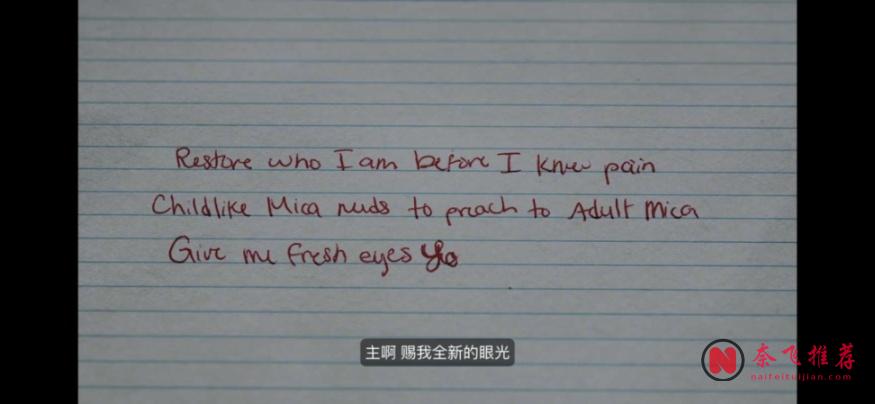 Restore who I am before I knew pain
Childlike Mica needs to preach to Adult Mica
Give me fresh eyes
主啊 赐我全新的眼光
奈飞推荐
naifeituijian.com